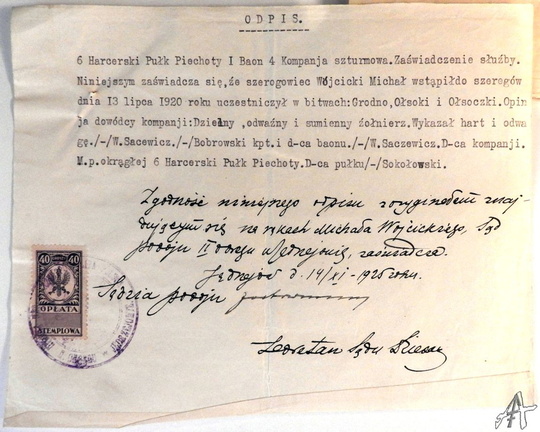 O D P I S.
6 Harcerski Pułk Piechoty I Baon 4 Kompanja szturmowa.Zaświadczenie służby.
Niniejszym zaświadcza się,że szerogowiec Wójcicki Michał wstąpiłdo szeregów
dnia 13 lipca 1920 roku uczestniczył w bitwach:Grodno,Olsoki i Olsoczki.Opin
ja dowódcy kompanji:Dzielny ,odważny i sumienny żołnierz.Wykazał hart i odwa
gę./-/W.Sacewicz./-/Bobrowski kpt.i d-ca baonu./-/W.Saczewicz.D-ca kompanji.
M.p.okrągłej 6 Harcerski Pułk Piechoty.D-ca pułku/-/Sokołowski.
Zgodność niniejszego odpisu z oryginałem znaj-
dującym się na rękach Michała Wójcickiego, Sąd
pokoju II okręgu w Jędrzejowie, zaświadcza.
Jędrzejów d. 14/XI - 1925 roku.
Sędzia pokoju
Sekretarz Sądu
40 40
OPŁATA
STEMPLOWA